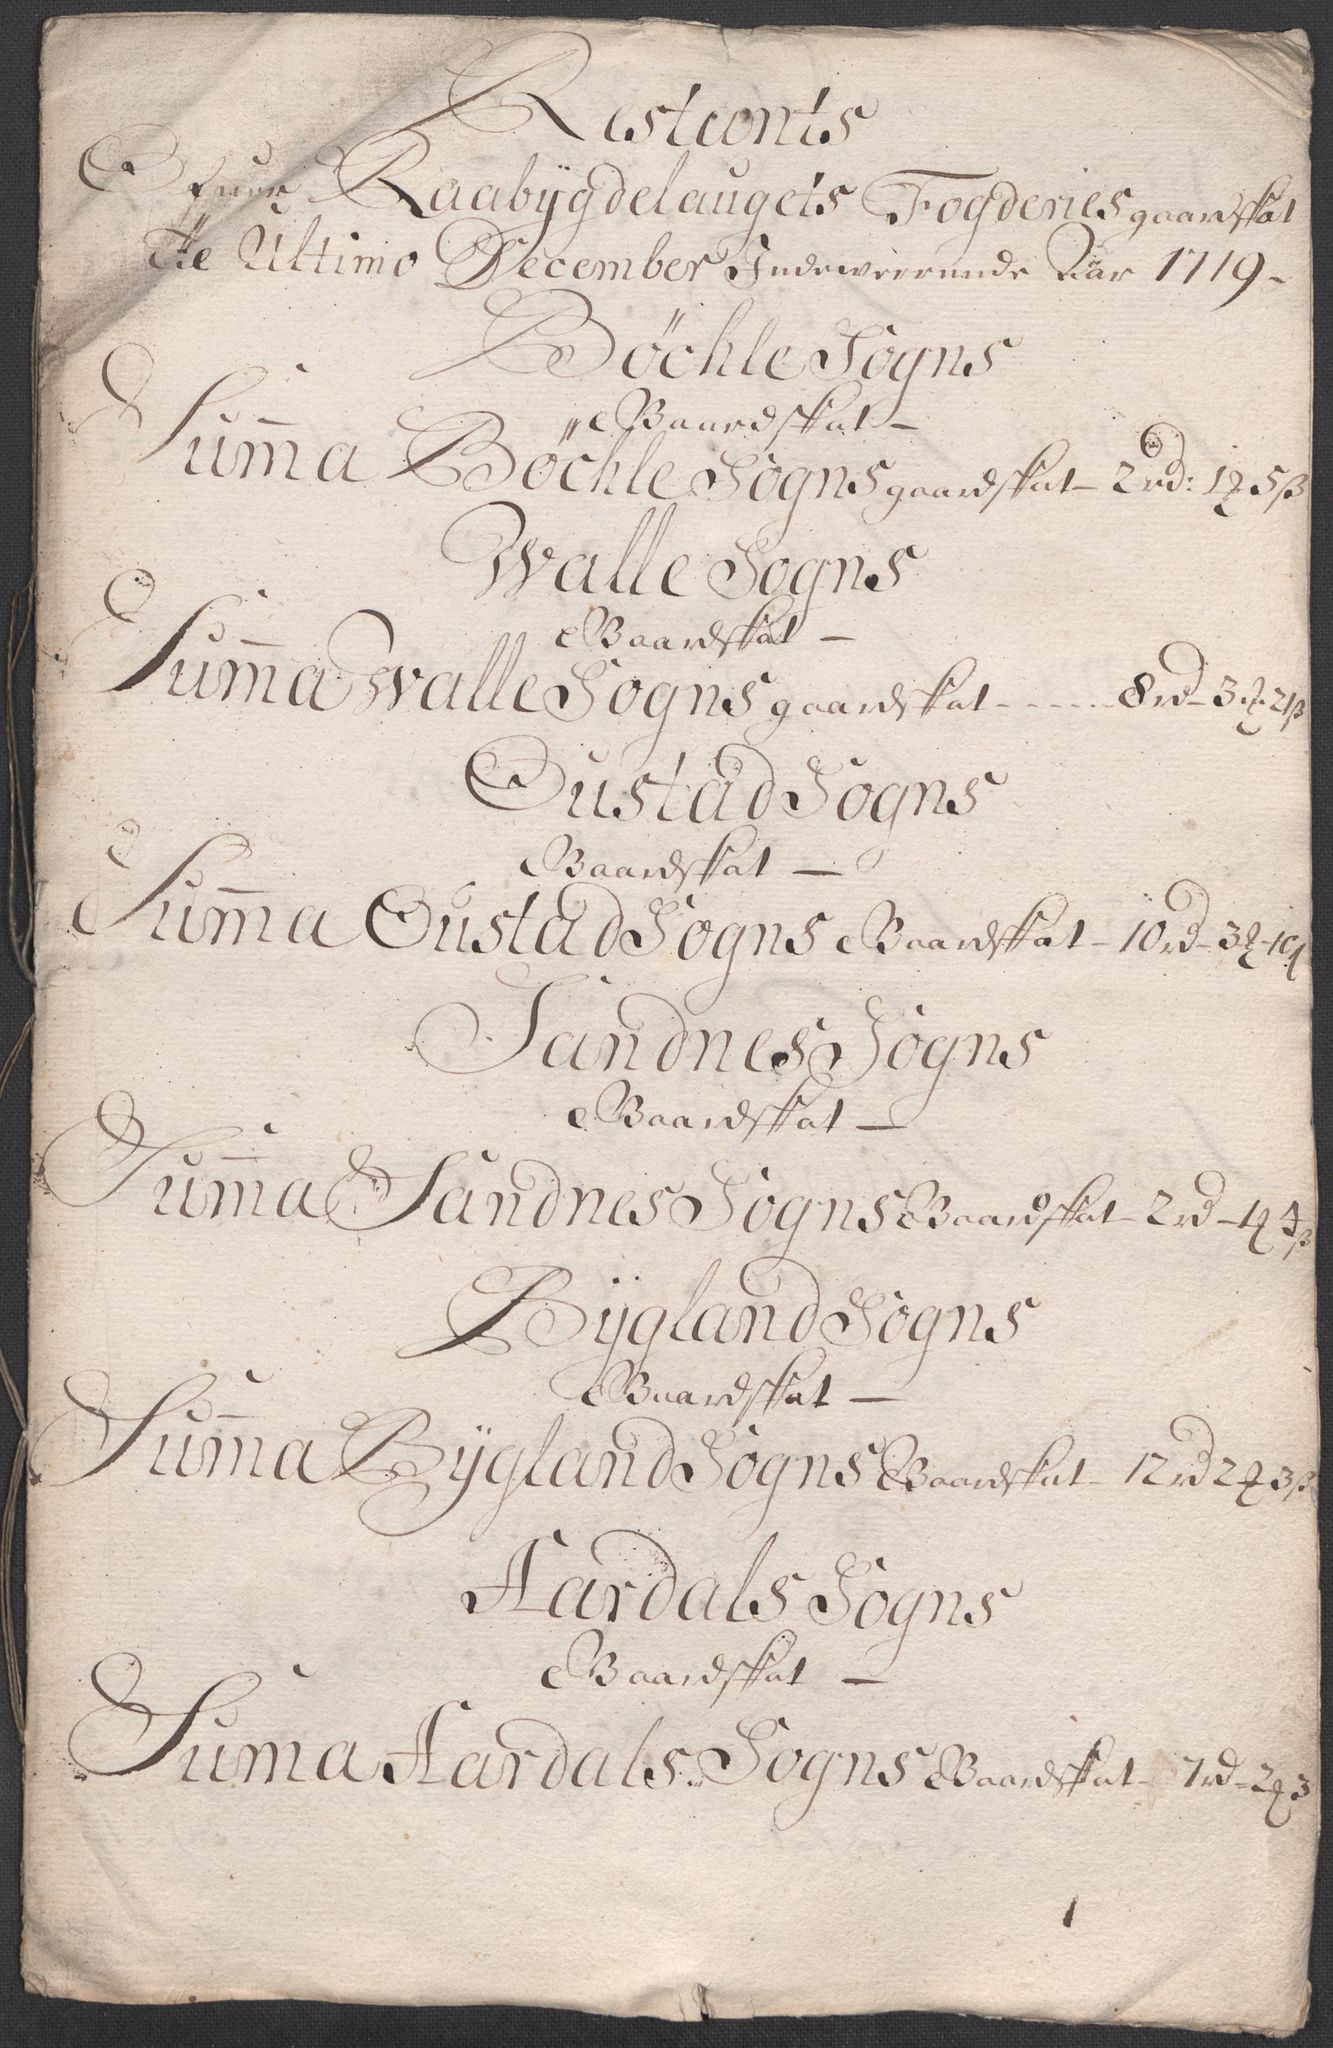 Restents
Ofuer Raabÿgdelaugets Fogderies gaardskat
til Ultimo December Indewerende Aar 1719-
Böchle Sogns
Gaardskat -
Sum̄a Böchle Sogns gaardskat - 2 rd: 1 ₰ 5 ß
Walle Sogns
Gaardskat -
Sum̄a Walle Sogns gaardskat - - - - - 8 rd - 3 ₰ 21 ß
Oustad Sogns
Gaardskat -
Sum̄a Oustad Sogns Gaardskat - 10 rd - 3 ₰
Sandnes Sogns
Gaardskat -
Sum̄a Sandnes Sogns Gaardskat - 2 rd - 1 ₰ 4 ß
Bÿgland Sogns
Gaardskat -
Sum̄a Bÿgland Sogns Gaardskat - 12 rd 2 ₰ 3 ß
Aardals Sogns
Gaardskat -
Suma Aardals Sogns Gaardskat - 7 rd - 2 ₰ 3
1